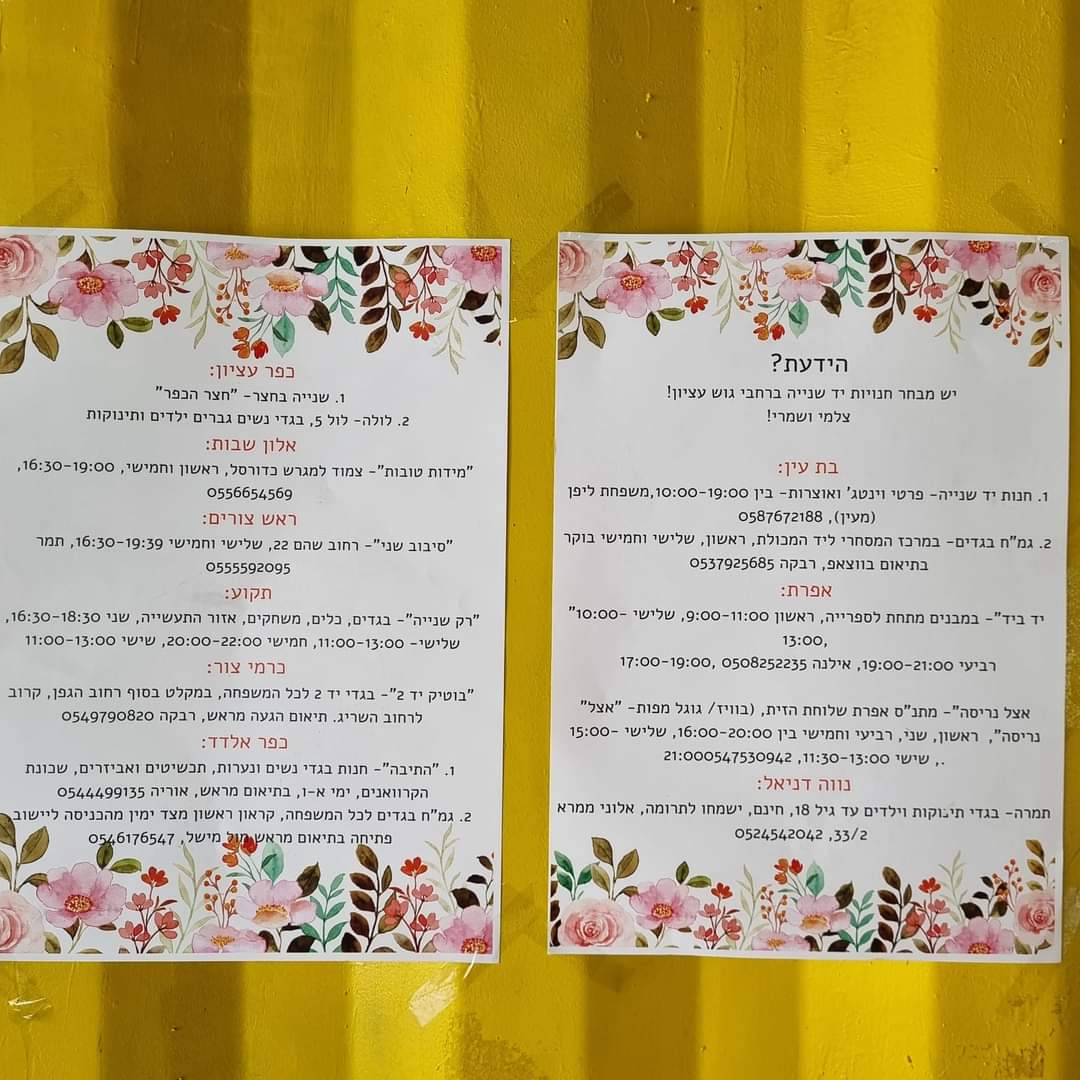 הידעת?
יש מבחר חנויות יד שנייה ברחבי גוש עציון!
צלמי ושמרי!
בת עין:
1. חנות יד שנייה- פרטי וינטג' ואוצרות- בין 10:00-19:00,משפחת ליפן
(מעין), 0587672188
2. גמ"ח בגדים- במרכז המסחרי ליד המכולת, ראשון, שלישי וחמישי בוקר
בתיאום בווצאפ, רבקה 0537925685
אפרת:
יד ביד"- במבנים מתחת לספרייה, ראשון 9:00-11:00, שלישי 10:00-"
13:00,
רביעי 19:00-21:00, אילנה 0508252235, 17:00-19:00
אצל נריסה"- מתנ"ס אפרת שלוחת הזית, (בוויז/ גוגל מפות- "אצל"
נריסה", ראשון, שני, רביעי וחמישי בין 16:00-20:00, שלישי 15:00-
., שישי 11:30-13:00, 21:000547530942
נווה דניאל:
תמרה- בגדי תינוקות וילדים עד גיל 18, חינם, ישמחו לתרומה, אלוני ממרא
33/2, 0524542042
כפר עציון:
1. שנייה בחצר- "חצר הכפר"
2. לולה- לול 5, בגדי נשים גברים ילדים ותינוקות
אלון שבות:
"מידות טובות"- צמוד למגרש כדורסל, ראשון וחמישי, 16:30-19:00,
0556654569
ראש צורים:
"סיבוב שני"- רחוב שהם 22, שלישי וחמישי 16:30-19:39, תמר
0555592095
תקוע:
"רק שנייה"- בגדים, כלים, משחקים, אזור התעשייה, שני 16:30-18:30,
שלישי- 11:00-13:00, חמישי 20:00-22:00, שישי 11:00-13:00
כרמי צור:
"בוטיק יד 2"- בגדי יד 2 לכל המשפחה, במקלט בסוף רחוב הגפן, קרוב
לרחוב השריג. תיאום הגעה מראש, רבקה 0549790820
כפר אלדד:
1. "התיבה"- חנות בגדי נשים ונערות, תכשיטים ואביזרים, שכונת
הקרוואנים, ימי א-ו, בתיאום מראש, אוריה 0544499135
2. גמ"ח בגדים לכל המשפחה, קראון ראשון מצד ימין מהכניסה ליישוב
פתיחה בתיאום מראש מול מישל, 0546176547